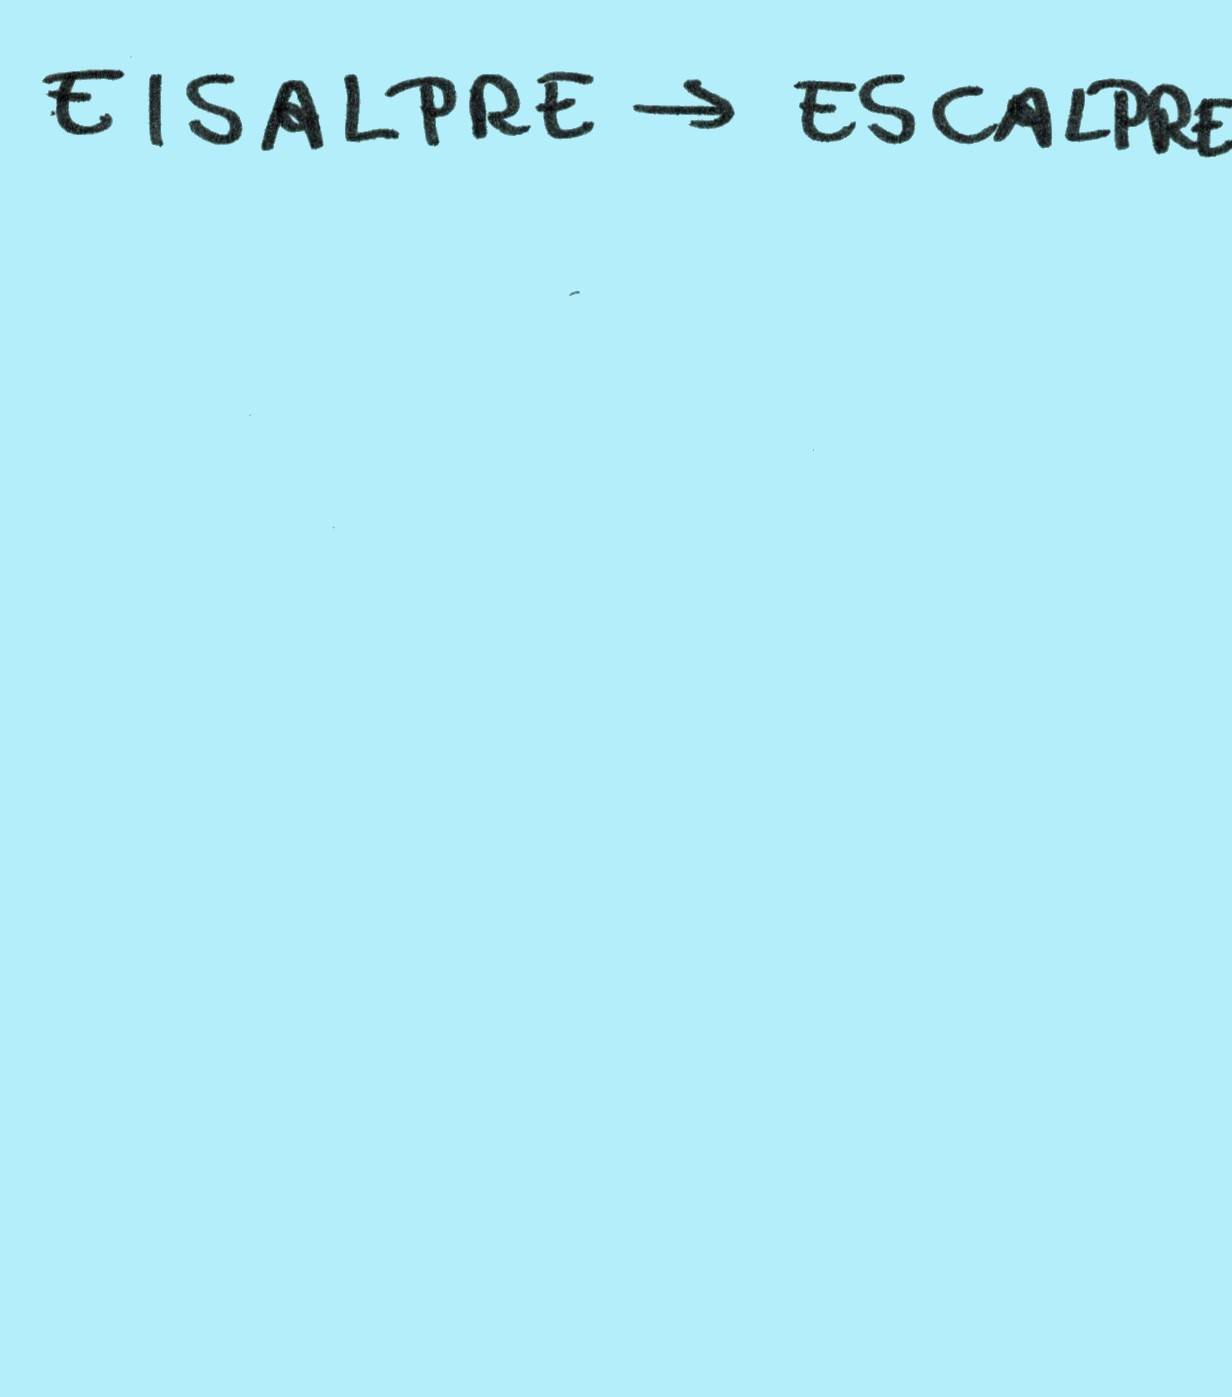 EISALPRE → ESCALPRE